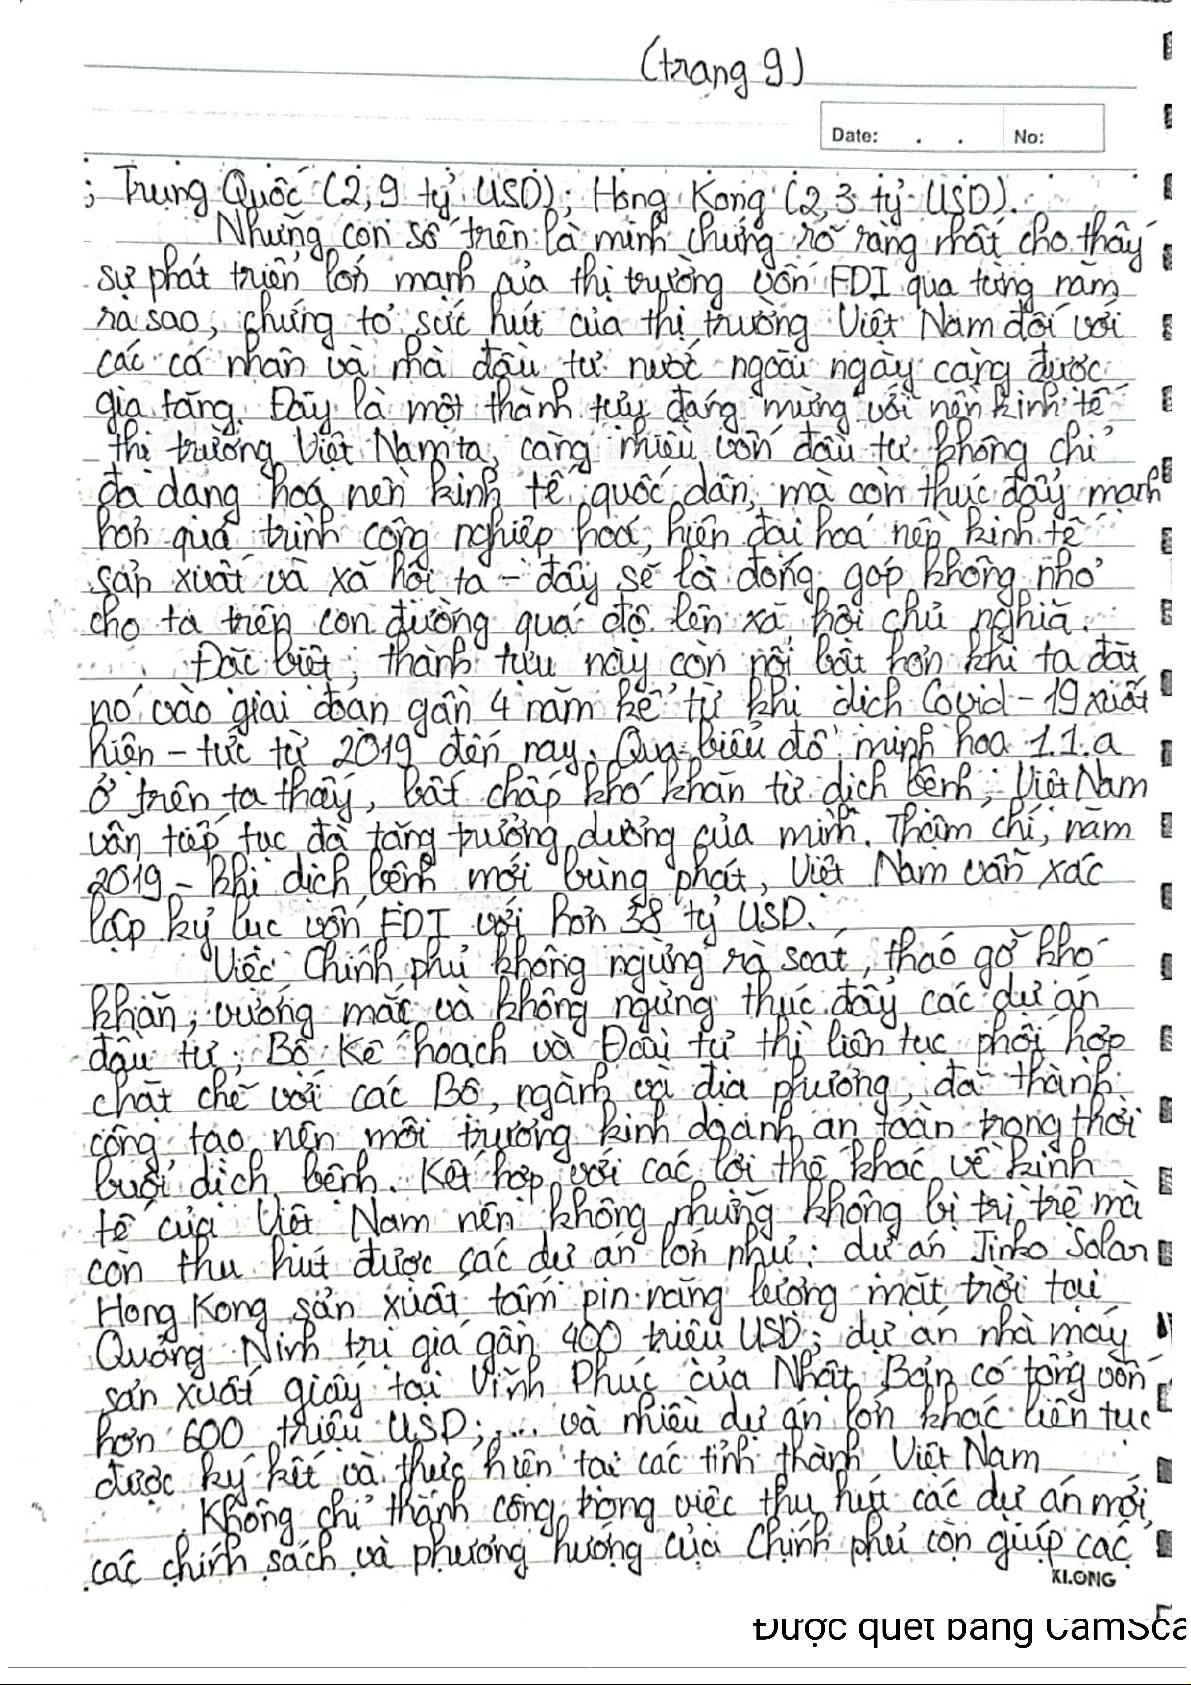 (trang 9)
Date: . . No:
; Trung Quốc (2,9 tỷ USD); Hong Kong (2,3 tỷ USD).
Những con số trên là minh chứng rõ ràng nhất cho thấy
sự phát triển lớn mạnh của thị trường vốn FDI qua từng năm
ra sao, chứng tỏ sức hút của thị trường Việt Nam đối với
các cá nhân và nhà đầu tư nước ngoài ngày càng được
gia tăng. Đây là một thành tựu đáng mừng với nền kinh tế
thị trường Việt Nam ta, càng nhiều vốn đầu tư không chỉ
đa dạng hoá nền kinh tế quốc dân, mà còn thúc đẩy mạnh
hơn quá trình công nghiệp hoá, hiện đại hoá nền kinh tế
sản xuất và xã hội ta - đây sẽ là đóng góp không nhỏ
cho ta trên con đường quá độ lên xã hội chủ nghĩa.
Đặc biệt, thành tựu này còn nổi bật hơn khi ta đặt
nó vào giai đoạn gần 4 năm kể từ khi dịch Covid-19 xuất
hiện - tức từ 2019 đến nay. Qua biểu đồ minh hoạ 1.1.a
ở trên ta thấy, bất chấp khó khăn từ dịch bệnh, Việt Nam
vẫn tiếp tục đà tăng trưởng dương của mình. Thậm chí, năm
2019 - khi dịch bệnh mới bùng phát, Việt Nam vẫn xác
lập kỷ lục vốn FDI với hơn 38 tỷ USD.
Việc Chính phủ không ngừng rà soát, tháo gỡ khó
khăn, vướng mắc và không ngừng thúc đẩy các dự án
đầu tư; Bộ Kế hoạch và Đầu tư thì liên tục phối hợp
chặt chẽ với các Bộ, ngành và địa phương, đã thành
công tạo nên môi trường kinh doanh an toàn trong thời
buổi dịch bệnh. Kết hợp với các lợi thế khác về kinh
tế của Việt Nam nên không những không bị trì trệ mà
còn thu hút được các dự án lớn như: dự án Jinko Solar
Hong Kong sản xuất tấm pin năng lượng mặt trời tại
Quảng Ninh trị giá gần 400 triệu USD; dự án nhà máy
sản xuất giấy tại Vĩnh Phúc của Nhật Bản có tổng vốn
hơn 600 triệu USD;... và nhiều dự án lớn khác liên tục
được ký kết và thực hiện tại các tỉnh thành Việt Nam
Không chỉ thành công trong việc thu hút các dự án mới,
các chính sách và phương hướng của Chính phủ còn giúp các
KLONG
Được quét bằng CamSca